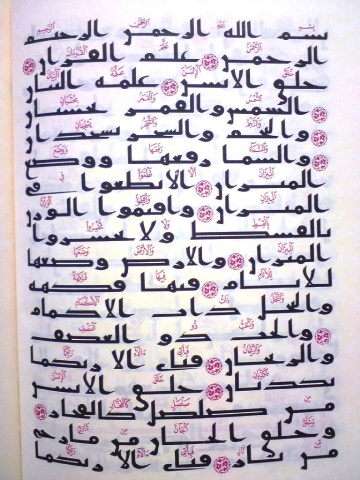 بسم الله الرحمن الرحيم
الرحمن علم القران
خلق الانسن علمه البيان
الشمس والقمر بحسبان
والنجم والشجر يسجدان
والسما رفعها ووضع
الميزان الا تطغوا في
الميزان واقيموا الوزن
بالقسط ولا تخسروا
الميزان والارض وضعها
للانام فيها فكهه
والنخل ذات الاكمام
والحب ذو العصف
والريحان فباي الا ربكما
تكذبان خلق الانسن
من صلصل كالفخار
وخلق الجان من مارج
من نار فباي الا ربكما